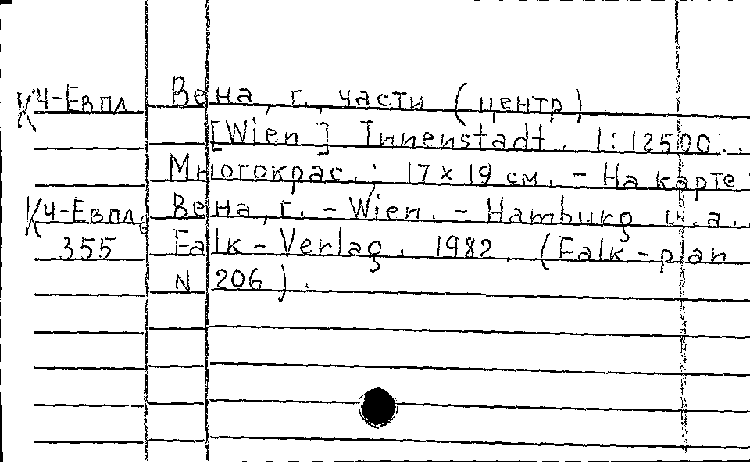 К4-Евпл Вена, г., части (центр)
[Wien] Innenstadt. 1:12500.
Многокрас.; 17×19 см. – На карте:
К4-Евпл. Вена, г. – Wien. – Hamburg u.a.
355 Falk-Verlag. 1982. (Falk-plan
N 206).